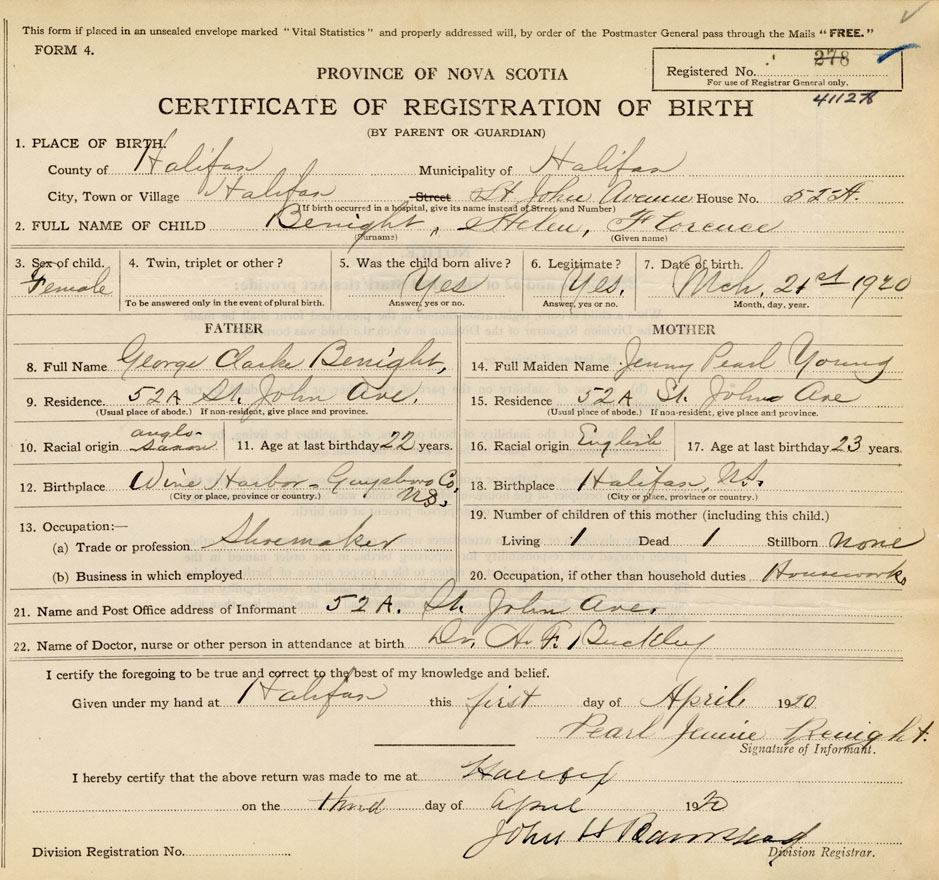 This form if placed in an unsealed envelope marked "Vital Statistics" and properly addressed will, by order of the Postmaster General pass through the Mails "FREE."
FORM 4.
278
Registered No.
For use of Registrar General only.
411278
PROVINCE OF NOVA SCOTIA
CERTIFICATE OF REGISTRATION OF BIRTH
(BY PARENT OR GUARDIAN)
1. PLACE OF BIRTH.
County of Halifax Municipality of Halifax
City, Town or Village Halifax Street St John Avenue House No. 52A.
(If birth occurred in a hospital, give its name instead of Street and Number)
2. FULL NAME OF CHILD Benight, Helen, Florence
(Surname) (Given name)
3. Sex of child. 4. Twin, triplet or other? 5. Was the child born alive? 6. Legitimate? 7. Date of birth.
Female Yes Yes. Mch, 21st 1920
To be answered only in the event of plural birth. Answer, yes or no. Answer, yes or no. Month, day, year.
FATHER MOTHER
8. Full Name George Clarke Benight, 14. Full Maiden Name Jenny Pearl Young
9. Residence. 52A St. John Ave. 15. Residence 52A St. John Ave
(Usual place of abode.) If non-resident, give place and province. (Usual place of abode.) If non-resident, give place and province.
10. Racial origin anglo-saxon 11. Age at last birthday 22 years. 16. Racial origin English 17. Age at last birthday 23 years.
12. Birthplace Wine Harbor - Guysboro Co, N.S. 18. Birthplace Halifax, N.S.
(City or place, province or country.) (City or place, province or country.)
13. Occupation:— 19. Number of children of this mother (including this child.)
(a) Trade or profession Shoemaker Living 1 Dead 1 Stillborn none
(b) Business in which employed 20. Occupation, if other than household duties Housework
21. Name and Post Office address of Informant 52A. St. John Ave.
22. Name of Doctor, nurse or other person in attendance at birth Dr. A. F. Buckley
I certify the foregoing to be true and correct to the best of my knowledge and belief.
Given under my hand at Halifax this first day of April 1920
Pearl Jennie Benight.
Signature of Informant.
I hereby certify that the above return was made to me at
on the third day of April 1920
John H
Division Registration No. Division Registrar.